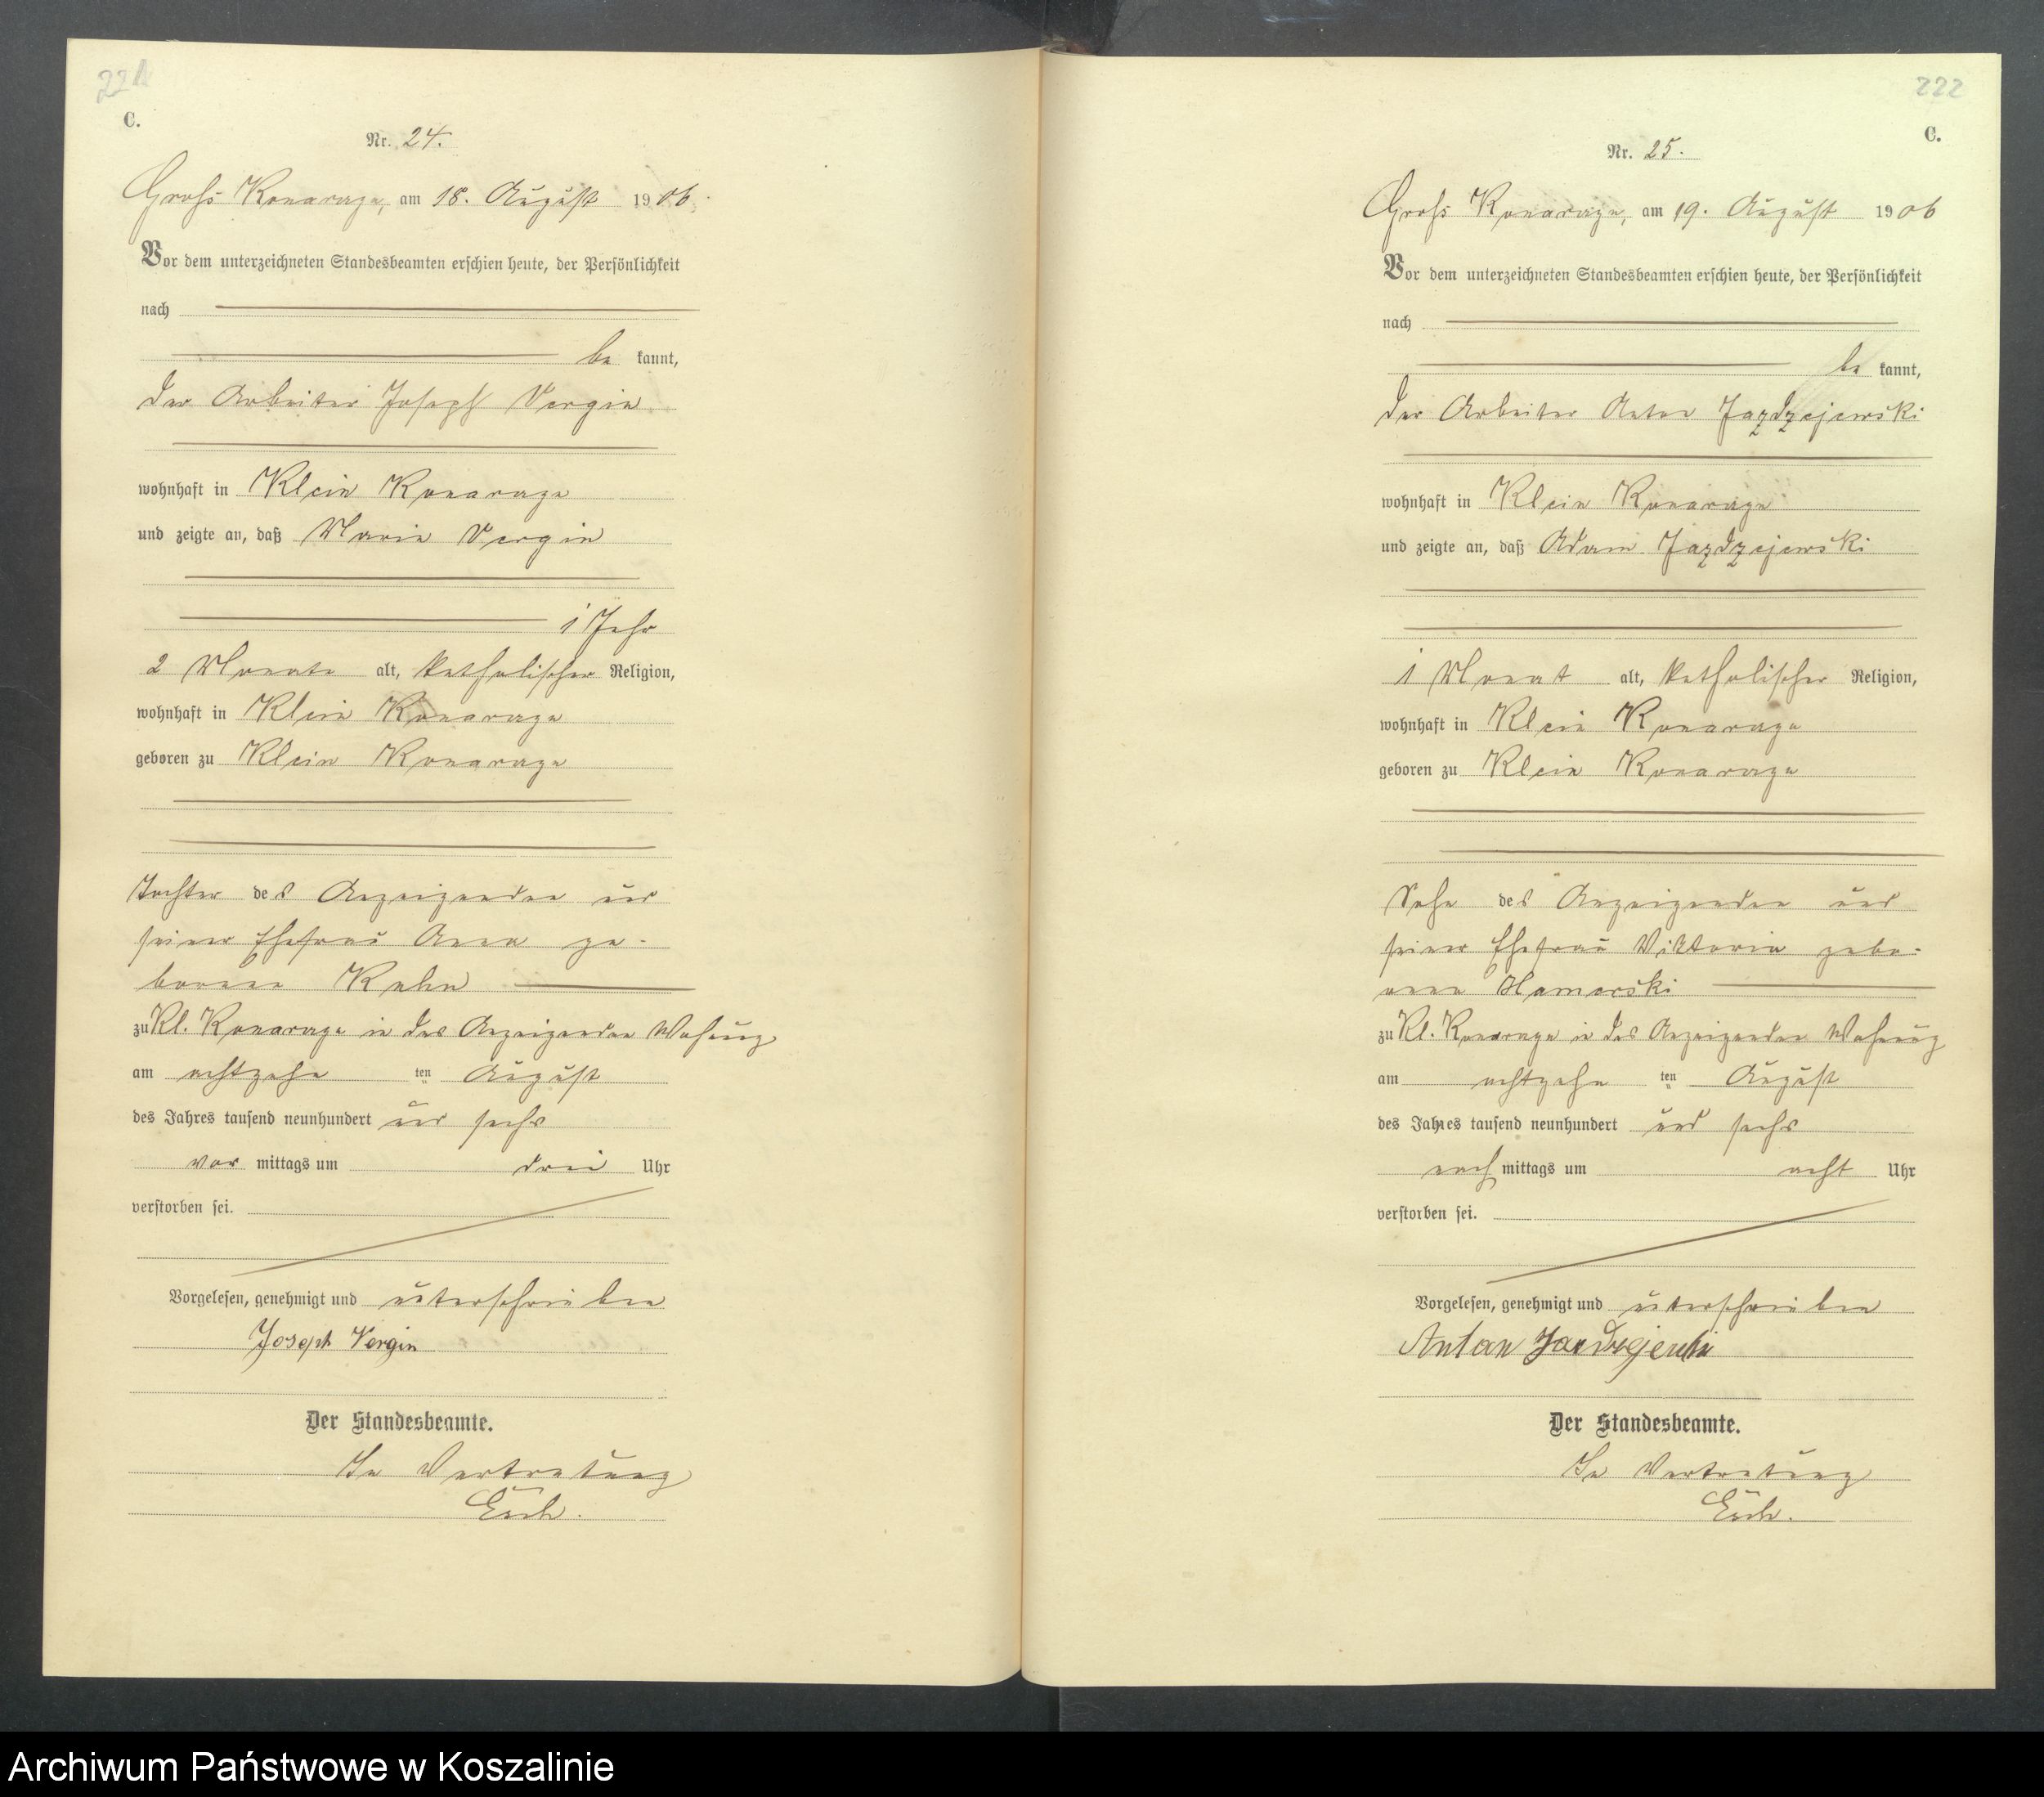 221
C.
Nr. 24.
Groß Konarczyn, am 18. August 1906.
Vor dem unterzeichneten Standesbeamten erschien heute, der Persönlichkeit
nach
be kannt,
der Arbeiter Joseph Vergin
wohnhaft in Klein Konarczyn
und zeigte an, daß Maria Vergin
1 Jahr
2 Monate alt, katholischer Religion,
wohnhaft in Klein Konarczyn
geboren zu Klein Konarczyn
Tochter des Anzeigenden und
seiner Ehefrau Anna ge-
borenen
zu Kl. Konarczyn in des Anzeigenden Wohnung
am achtzehn ten August
des Jahres tausend neunhundert und sechs
vor mittags um drei Uhr
verstorben sei.
Vorgelesen, genehmigt und unterschrieben
Joseph Vergin
Der Standesbeamte.
In Vertretung
222
C.
Nr. 25.
Groß Konarczyn, am 19. August 1906
Vor dem unterzeichneten Standesbeamten erschien heute, der Persönlichkeit
nach
be kannt,
der Arbeiter Anton Jazdzejewski
wohnhaft in Klein Konarczyn
und zeigte an, daß Adam Jazdzejewski
1 Monat alt, katholischer Religion,
wohnhaft in Klein Konarczyn
geboren zu Klein Konarczyn
Sohn des Anzeigenden und
seiner Ehefrau Viktoria gebo-
renen Hamerski
zu Kl. Konarczyn in des Anzeigenden Wohnung
am achtzehn ten August
des Jahres tausend neunhundert und sechs
nach mittags um acht Uhr
verstorben sei.
Vorgelesen, genehmigt und unterschrieben
Anton
Der Standesbeamte.
In Vertretung
Archiwum Państwowe w Koszalinie